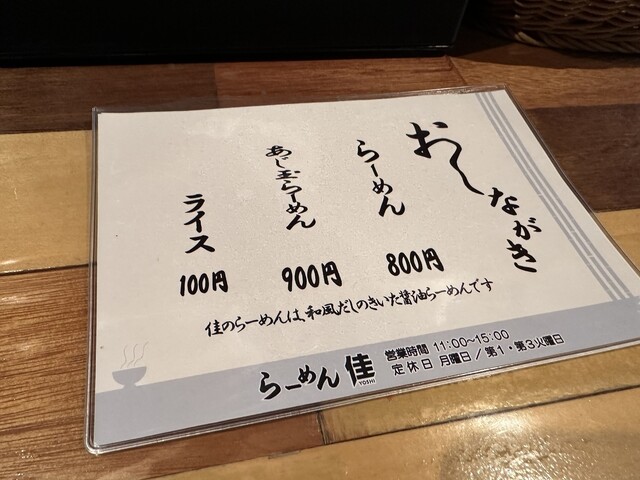 おしながき
らーめん
800円
あじ玉らーめん
900円
ライス
100円
佳のらーめんは、和風だしのきいた醤油らーめんです
らーめん 佳
YOSHI
営業時間 11:00~15:00
定休日 月曜日/第1・第3火曜日